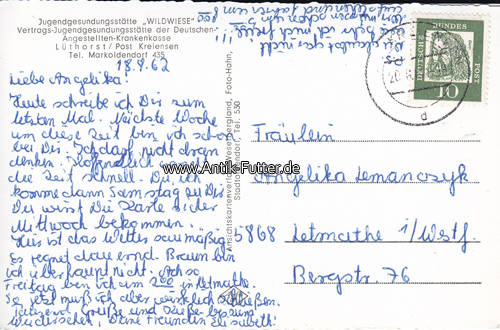 Jugendgesundungsstätte „WILDWIESE"
Vertrags-Jugendgesundungsstätte der Deutschen
Angestellten-Krankenkasse
Lüthorst/Post Kreiensen
Tel. Markoldendorf 435
18.9.62
Liebe Angelika!
Heute schreibe ich Dir zum
letzten Mal. Nächste Woche
um diese Zeit bin ich schon
bei Dir. Ich darf nicht dran
denken. Hoffentlich
die Zeit schnell. Du, ich
komme dann Samstag zu Dir.
Du wirst Die Karte sicher
Mittwoch bekommen.
Hier ist das Wetter saumäßig
Es regnet dauernd. Braun bin
ich überhaupt nicht. Ach so
Freitag bin ich um 2 00 in Letmathe.
So jetzt muß ich aber wirklich schließen.
Tausend Grüße und Küße bis zum
Deine Freundin Elisabeth!
Du glaubst gar nicht
wie sehr ich mich freue
Ansichtskartenverlag Weserbergland, Foto-Hahn,
Stadtoldendorf, Tel. 530
DEUTSCHE BUNDESPOST
10
www.Antik-Futter.de
Fräulein
Angelika Lemanczyk
5868 Letmathe i/Westf.
Bergstr. 76